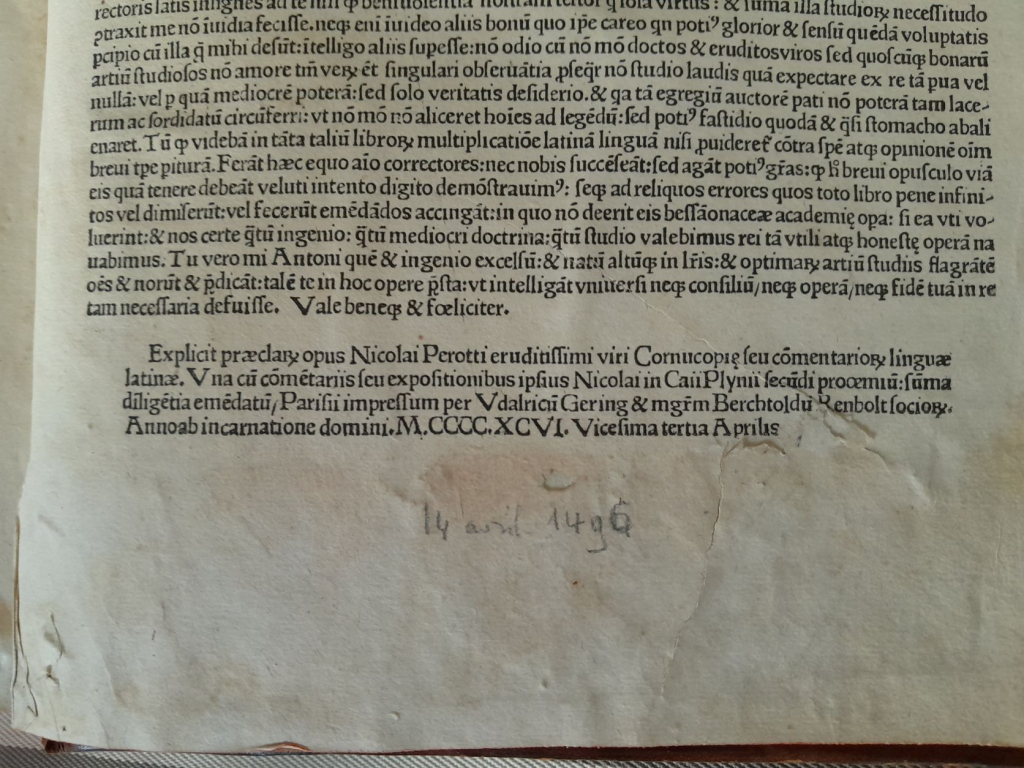 rectoris latis insignes ad te misi
ꝓtraxit me nō īuidia fecisse. neqꝫ eni īuideo aliis bonū quo ip̄e careo qn potiꝰ glorior & sensū quēdā voluptatis
pcipio cū illa q̄ mihi desūt: ītelligo aliis supesse: nō odio cū nō mō doctos & eruditos viros sed quoscūqꝫ bonarū
artiū studiosos nō amore tm̄ veꝝ ēt singulari obseruātia ꝓseqr̄ nō studio laudis quā expectare ex re tā pua vel
nullā: vel p quā mediocrē poterā: sed solo veritatis desiderio. & qa tā egregiū auctorē pati nō poterā tam lace-
rum ac sordidatū circūferri: vt nō mō nō aliceret hoīes ad legēdū: sed potiꝰ fastidio quodā & q̄si stomacho abali
enaret. Tū ꝙ videbā in tāta taliū libroꝝ multiplicatiōe latinā linguā nisi ꝓuideret̄ cōtra spē atqꝫ opinionē oīm
breui tp̄e piturā. Ferāt hæc equo aīo correctores: nec nobis succēseāt: sed agāt potiꝰ gr̄as: ꝙ h̄ breui opusculo viā
eis quā tenere debeāt veluti intento digito demōstrauimꝰ: seqꝫ ad reliquos errores quos toto libro pene infini-
tos vel dimiserūt: vel fecerūt emēdādos accingāt: in quo nō deerit eis bessāonaceæ academię opa: si ea vti vo-
luerint: & nos certe q̄tū ingenio: q̄tū mediocri doctrina: q̄tū studio valebimus rei tā vtili atqꝫ honestę operā na
uabimus. Tu vero mi Antoni quē & ingenio excelsū: & natū altūqꝫ in lr̄is: & optimaꝝ artiū studiis flagrātē
oēs & norūt & p̄dicāt: talē te in hoc opere p̄sta: vt intelligāt vniuersi neqꝫ consiliū/ neqꝫ operā/ neqꝫ fidē tuā in re
tam necessaria defuisse. Vale beneqꝫ & fœliciter.
Explicit præclaꝝ opus Nicolai Perotti eruditissimi viri Cornucopię seu cōmentarioꝝ linguæ
latinæ. Vna cū cōmētariis seu expositionibus ipsius Nicolai in Caii Plynii secūdi procemiū: sūma
diligētia emēdatū/ Parisii impressum per Vdalricū Gering & mgr̄m Berchtoldū Renbolt socioꝝ.
Anno ab incarnatione domini. M.CCCC.XCVI. Vicesima tertia Aprilis
14 avril 1496